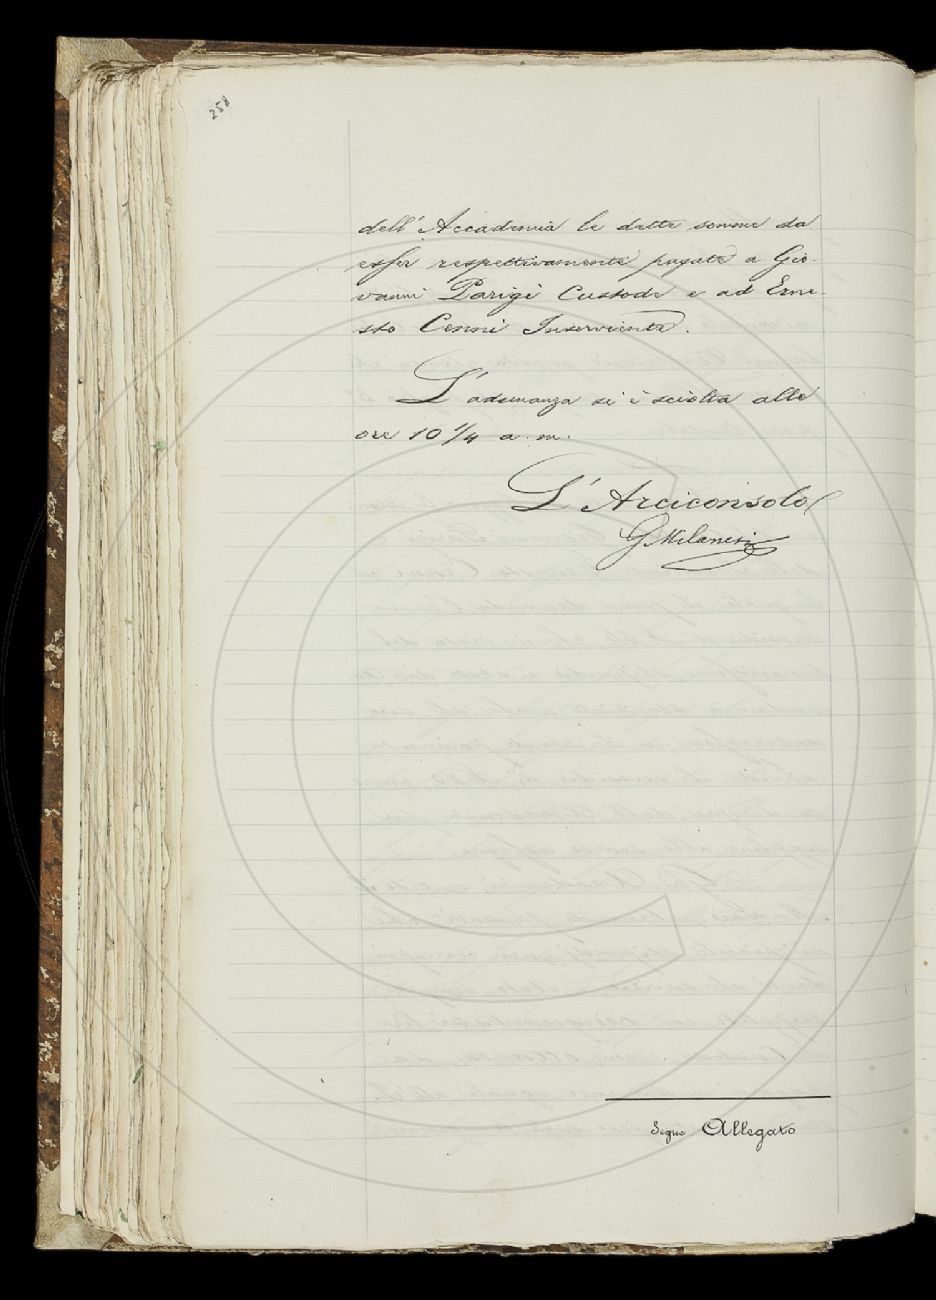 258
dell' Accademia le dette somme da
esser respettivamente pagate a Gio-
vanni Parigi Custode e ad Erne-
sto Cenni Inserviente.
L'adunanza si è sciolta alle
ore 10 1/4 a. m.
L'Arciconsolo
G Milanesi
Segue Allegato